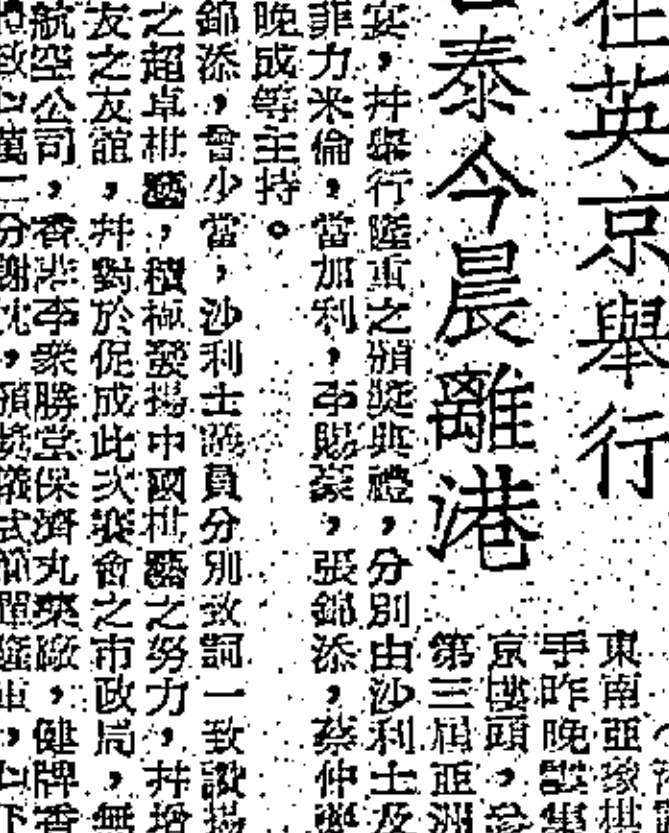 在英京舉行
泰今晨離港
東南亞象棋
手昨晚
京樓頭，
第三屆亞洲
宴，并舉行隆重之頒獎典禮，分別由沙利士及
菲力米倫，當加利，李賜豪，張錦添，蔡仲
晚成等主持。
錦添，曾少當，沙利士議員分別致詞一致讚揚
之超卓棋藝，積極發揚中國棋藝之努力，并增
友之友誼，并對於促成此次聚會之市政局，無
航空公司，香港李衆勝堂保濟丸藥廠，健牌香
致以萬二分謝忱，頒獎儀式簡單隆重，以下